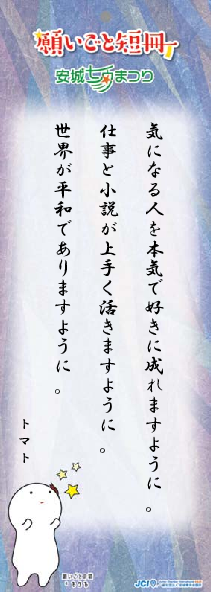 願いごと短冊
安城七夕まつり
気になる人を本気で好きに成れますように。
仕事と小説が上手く活きますように。
世界が平和でありますように。
トマト
願いごと
JCI